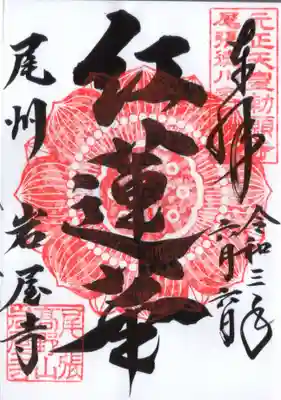 元正天皇勅願寺
尾張徳川家
奉拝
令和三年
六月六日
紅蓮華
尾州 岩屋寺
尾張
高野山
岩屋寺